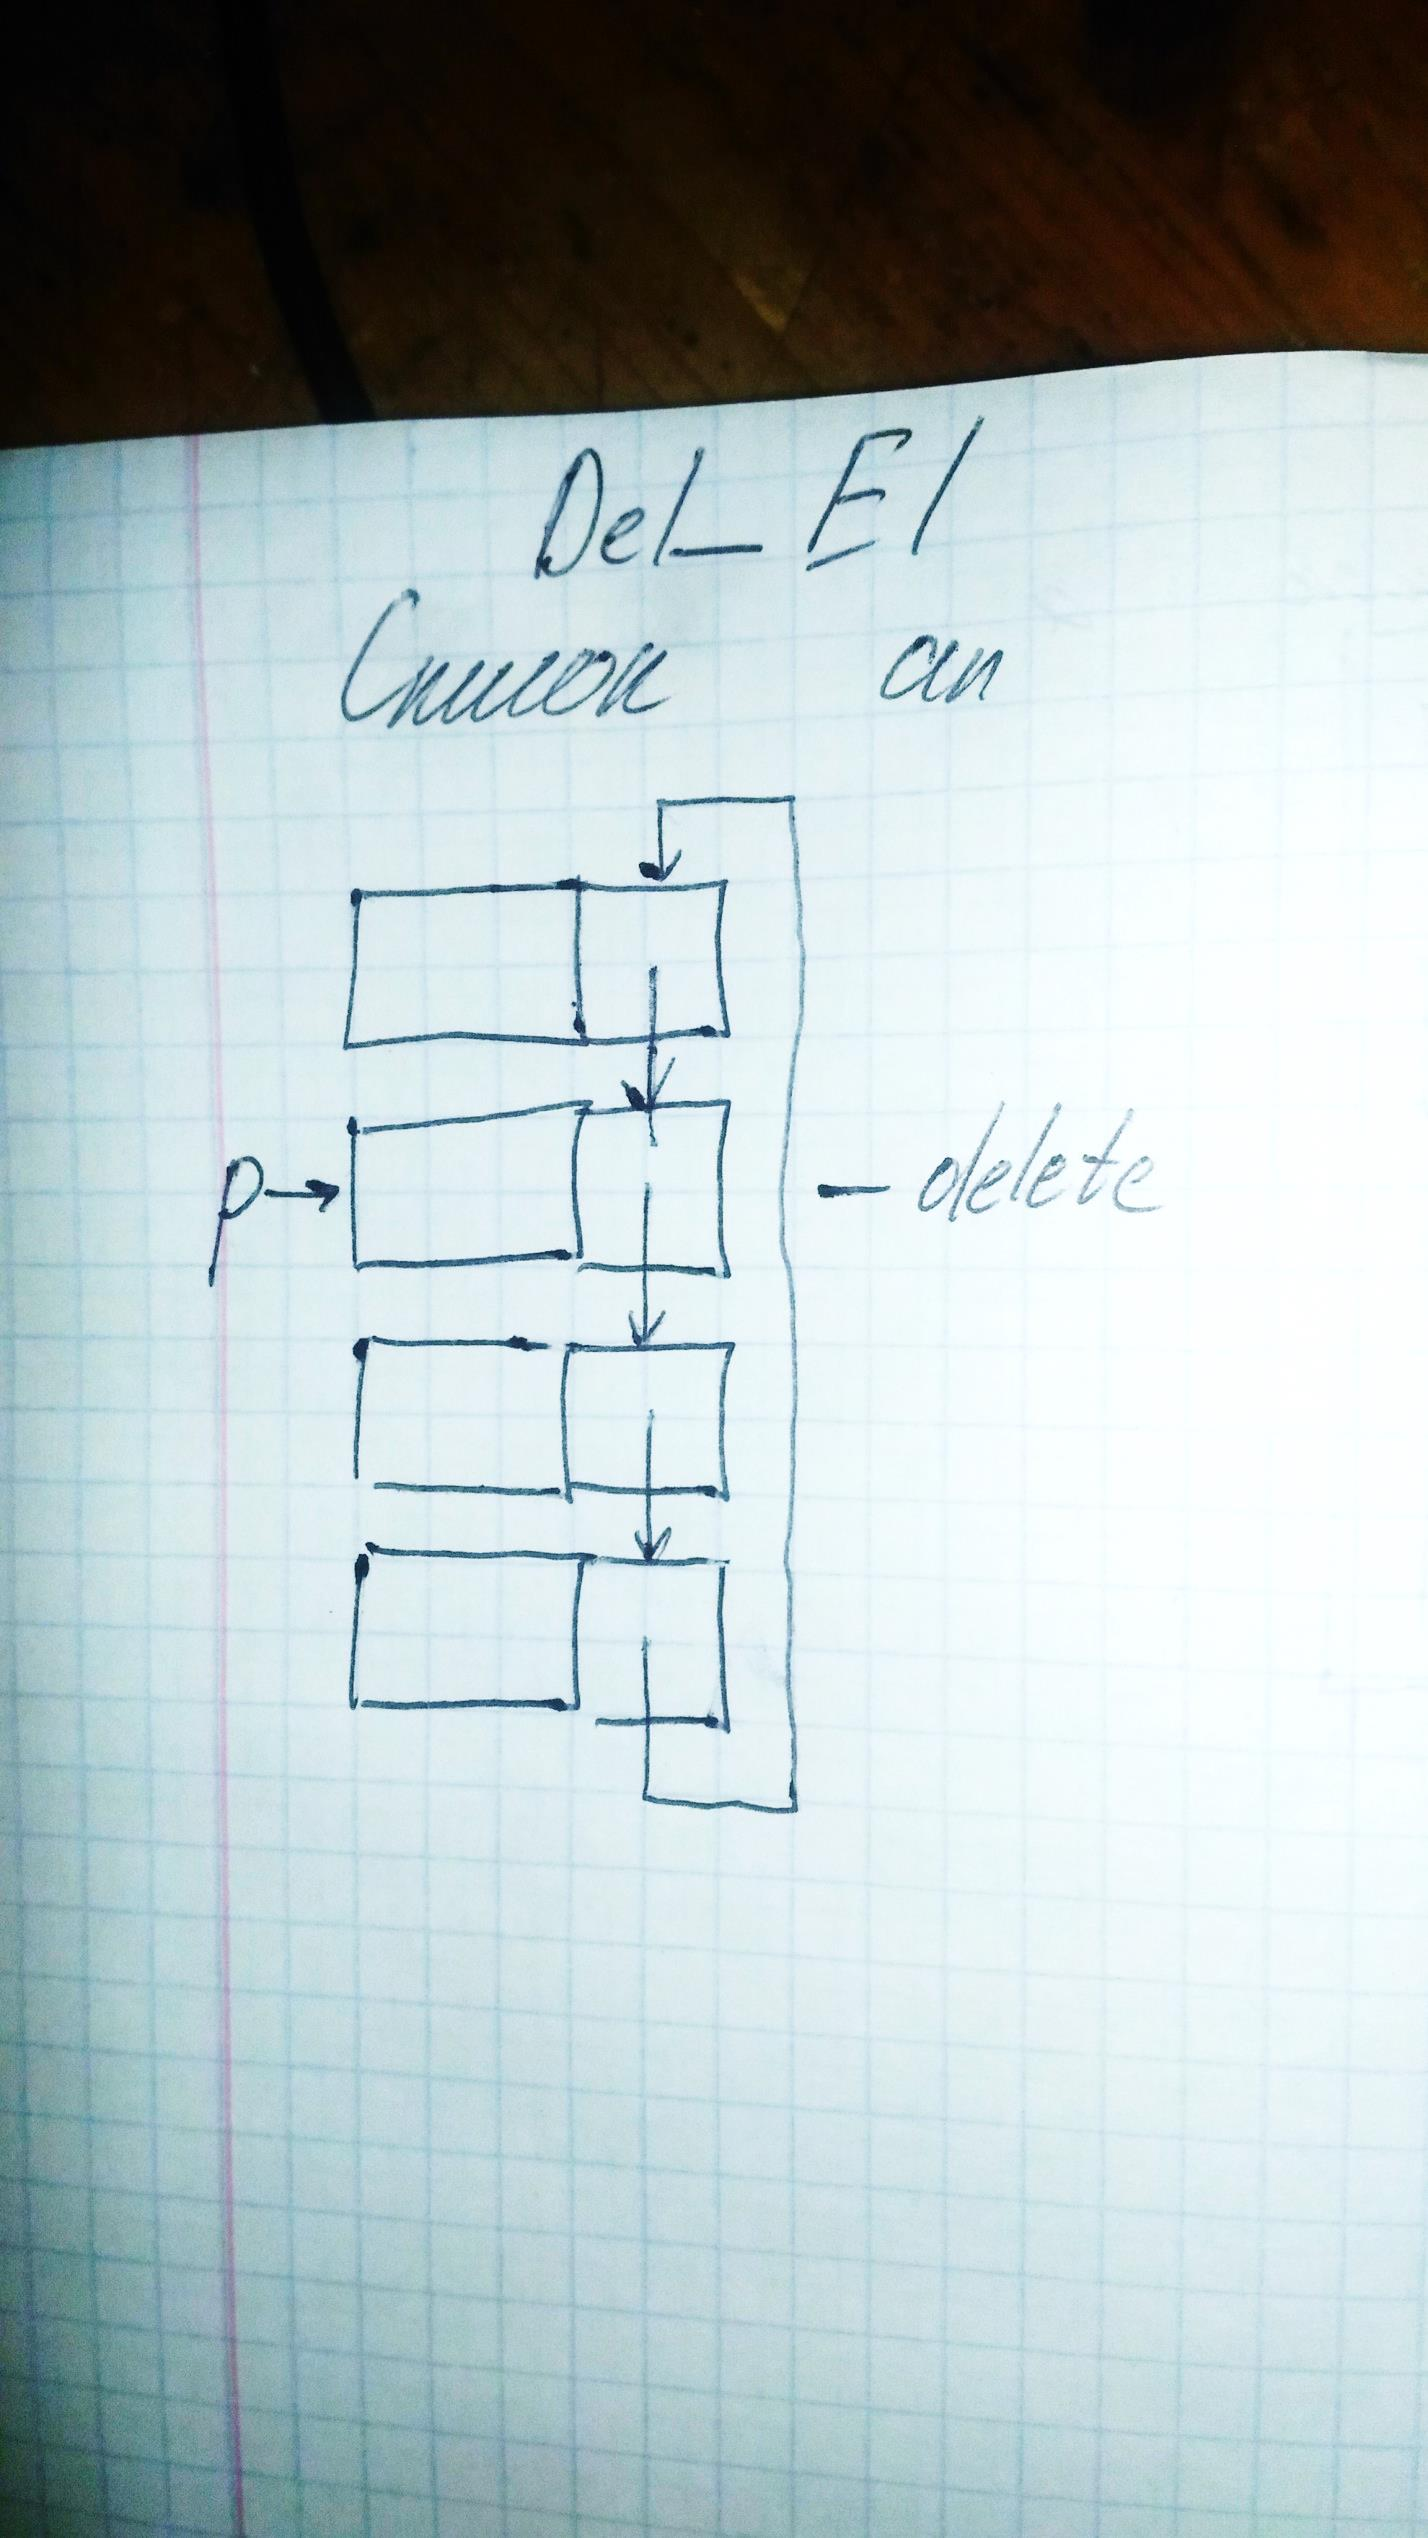 Del_El
Список ап
p
- delete